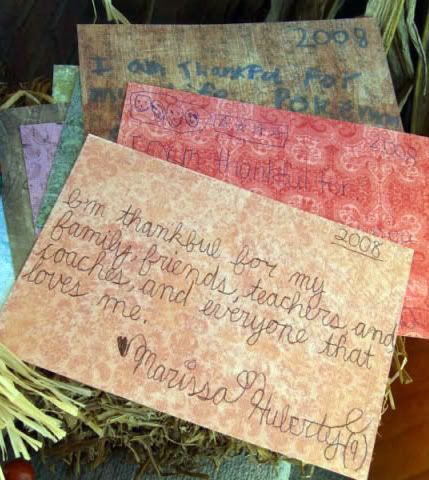 2008
I am Thankful For
my life, Pokemon
2008
I am thankful for
2008
I'm thankful for my
family, friends, teachers, and
coaches, and everyone that
loves me.
♥Marissa Huberty (9)